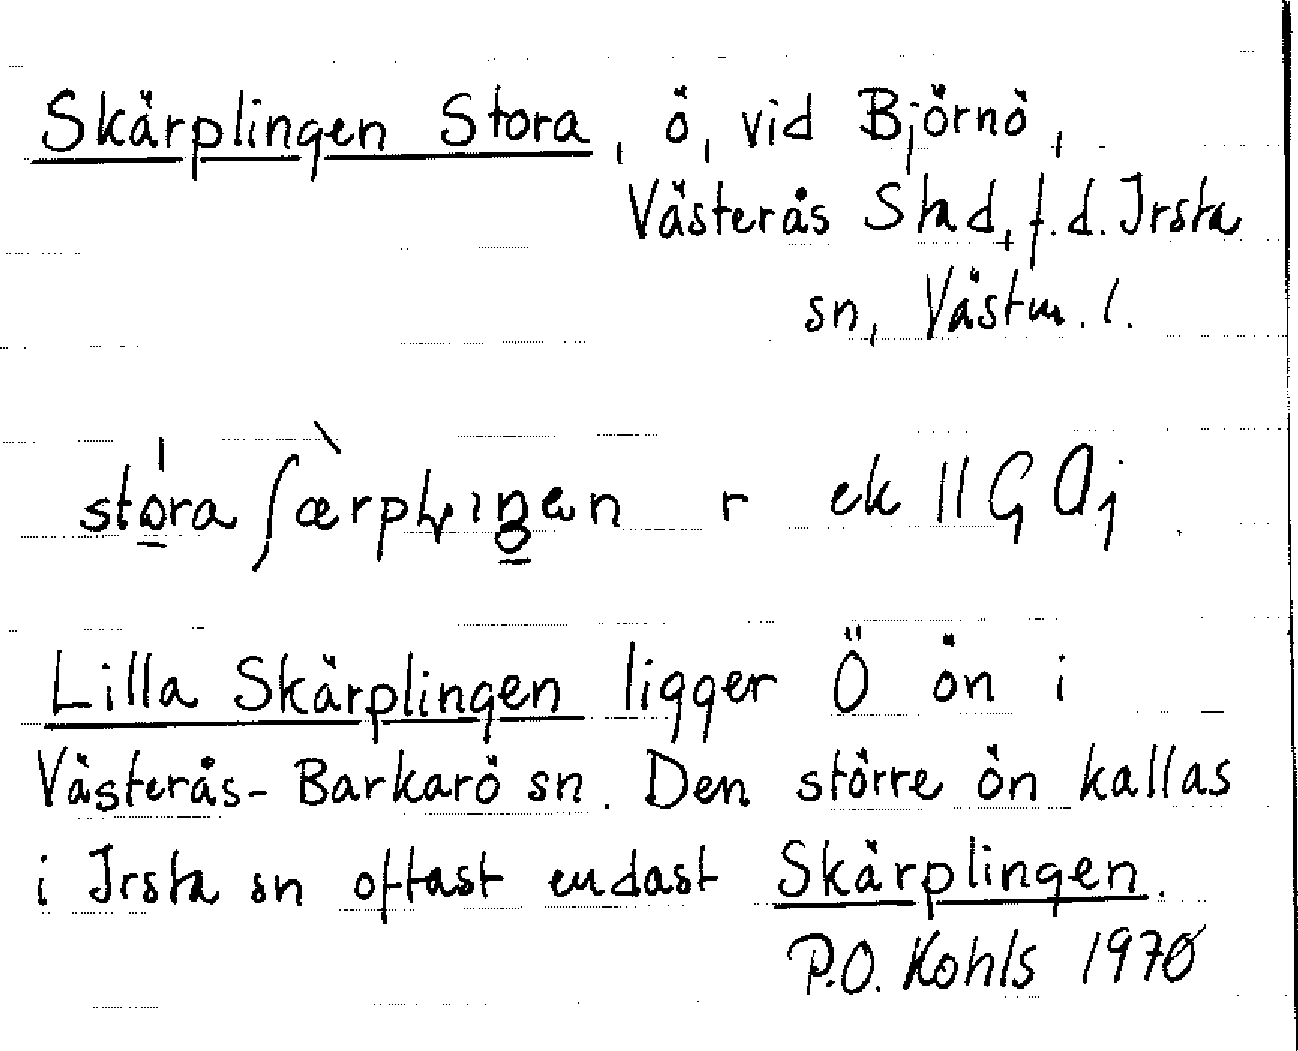 Skärplingen Stora, ö, vid Björnö,
Västerås Stad, f.d. Irsta
sn, Västm. l.
stora ʃærplıŋen r ek 11 G 0 j
Lilla Skärplingen ligger Ö ön i
Västerås-Barkarö sn. Den större ön kallas
i Irsta sn oftast endast Skärplingen.
P.O. Kohls 1970